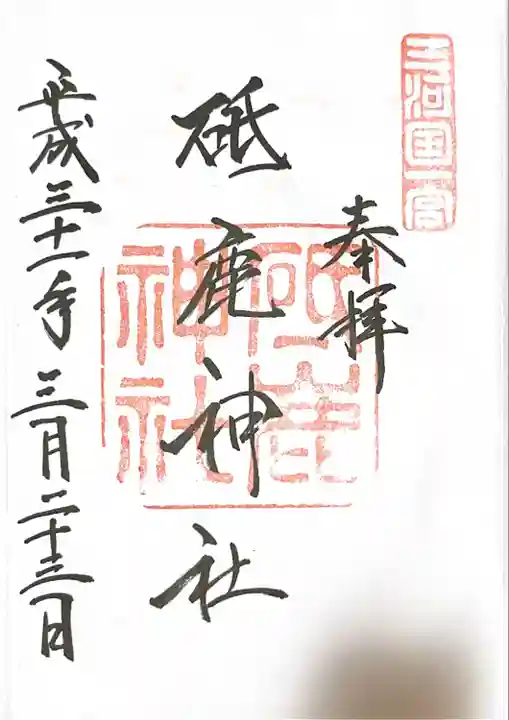 三河国一宮
奉拝
砥鹿神社
砥鹿
神社
平成三十一年三月二十三日